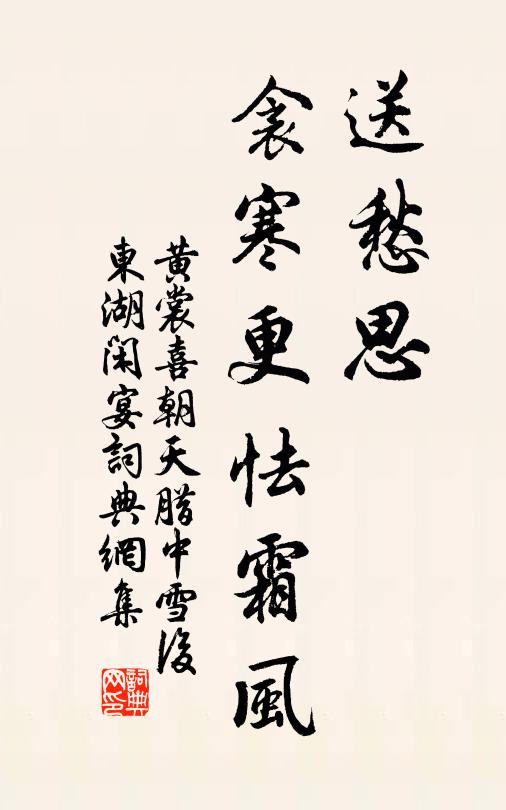 送愁思
衾寒更怯霜風
黄裳喜朝天腊中雪後
東湖闲宴詞典網集
詞典
网印